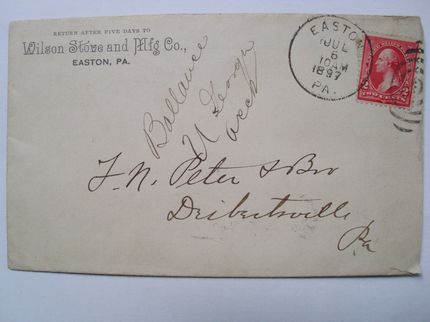 RETURN AFTER FIVE DAYS TO
Wilson Stove and Mfg Co.,
EASTON, PA.
EASTON
JUL
6
10AM
1897
PA.
2 TWO CENTS 2
Ballance
George
acct
Peter & Bro
Deibertsville
Pa